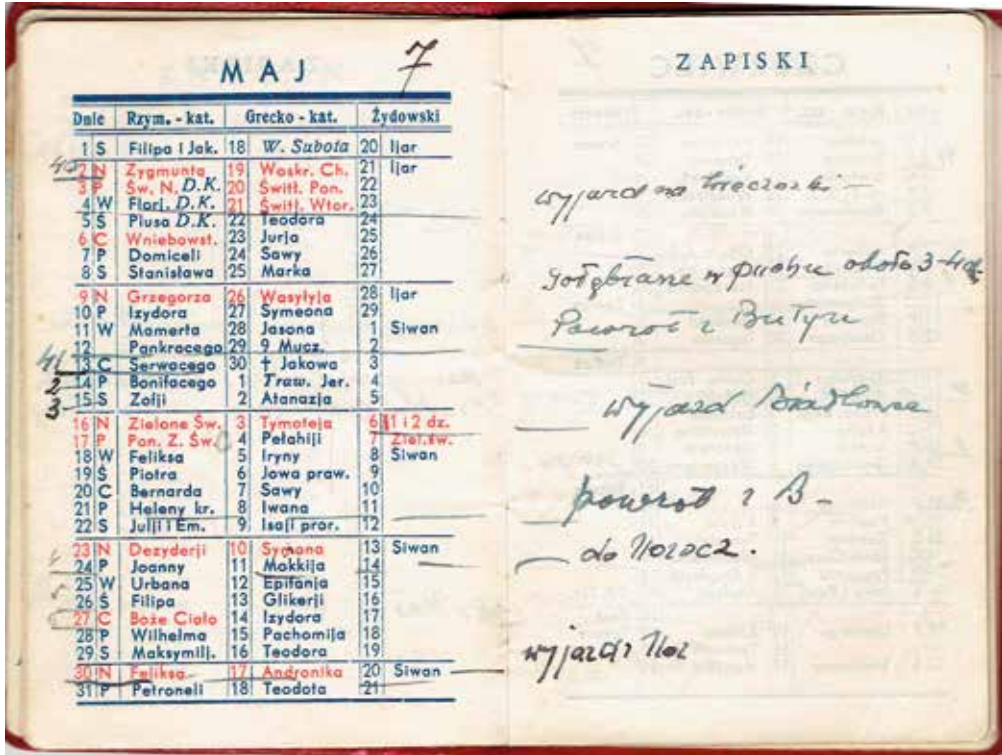 MAJ 7
Dnie Rzym.-kat. Grecko-kat. Żydowski
1 S Filipa i Jak. 18 W. Subota 20 Ijar
2 N Zygmunta 19 Woskr. Ch. 21 Ijar
3 P Św. N. D.K. 20 Świtł. Pon. 22
4 W Florj. D.K. 21 Świtł. Wtor. 23
5 Ś Piusa D.K. 22 Teodora 24
6 C Wniebowst. 23 Jurja 25
7 P Domiceli 24 Sawy 26
8 S Stanisława 25 Marka 27
9 N Grzegorza 26 Wasyłyja 28 Ijar
10 P Izydora 27 Symeona 29
11 W Mamerta 28 Jasona 1 Siwan
12 Pankracego 29 9 Mucz. 2
41 13 C Serwacego 30 † Jakowa 3
2 14 P Bonifacego 1 Traw. Jer. 4
3 15 S Zofji 2 Atanazja 5
16 N Zielone Św. 3 Tymoteja 6 1 i 2 dz.
17 P Pon. Z. Św. 4 Pełahiji 7 Ziel. św.
18 W Feliksa 5 Iryny 8 Siwan
19 Ś Piotra 6 Jowa praw. 9
20 C Bernarda 7 Sawy 10
21 P Heleny kr. 8 Iwana 11
22 S Julji i Em. 9 Isaji pror. 12
23 N Dezyderji 10 Symona 13 Siwan
24 P Joanny 11 Mokkija 14
25 W Urbana 12 Epifanja 15
26 Ś Filipa 13 Glikerji 16
27 C Boże Ciało 14 Izydora 17
28 P Wilhelma 15 Pachomija 18
29 S Maksymilj. 16 Teodora 19
30 N Feliksa 17 Andronika 20 Siwan
31 P Petroneli 18 Teodota 21
ZAPISKI
wyjazd na
w około 3-4
Powrót z Butyn
wyjazd
powrót z B-
do Horocz.
wyjazd z Hor